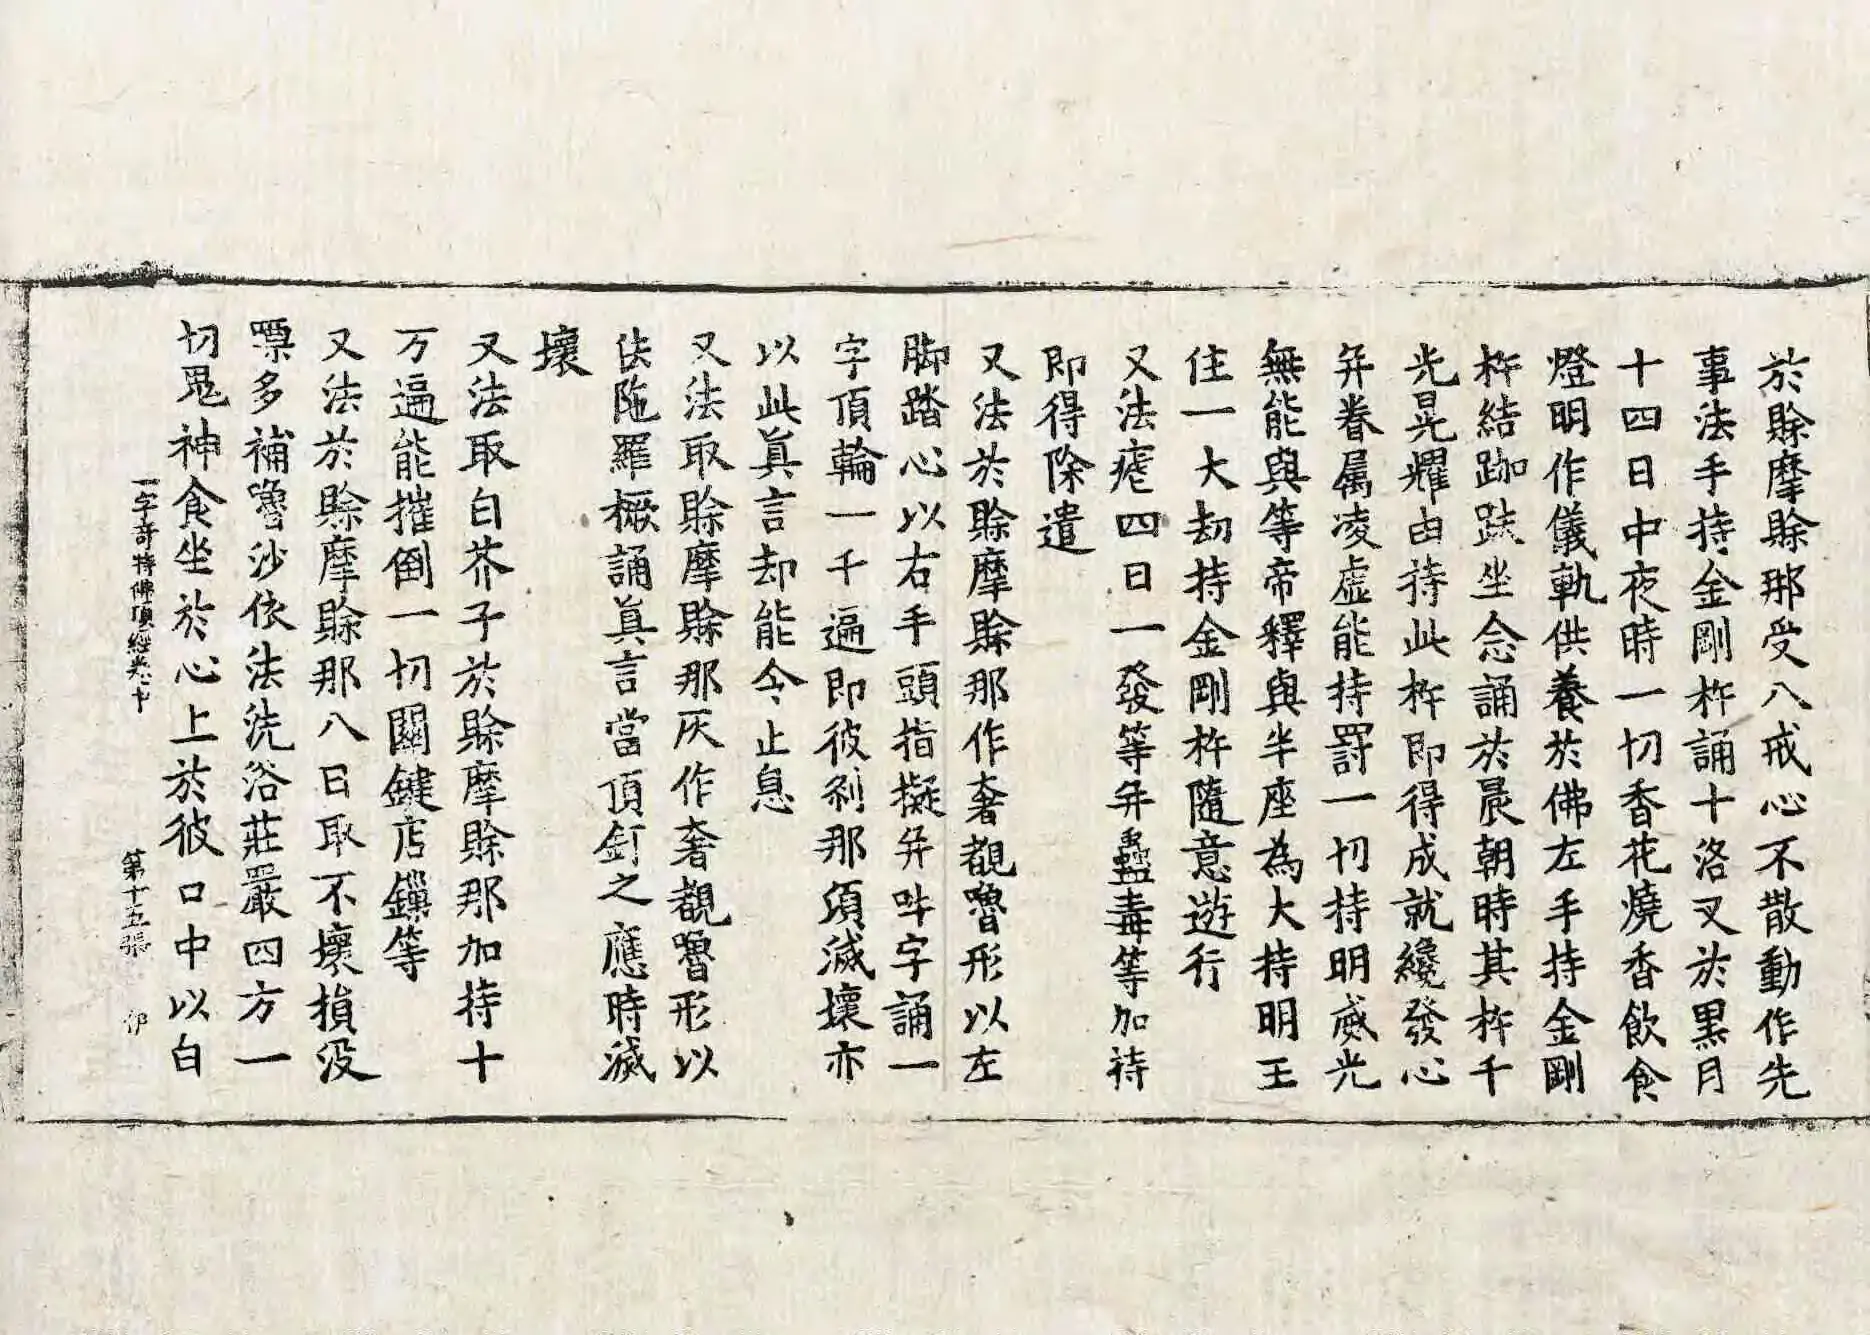 於賒摩賒那受八戒心不散動作先
事法手持金剛杵誦十洛叉於黒月
十四日中夜時一切香花燒香飲食
燈明作儀軌供養於佛左手持金剛
杵結跏趺坐念誦於晨朝時其杵千
光晃耀由持此杵即得成就纔發心
并眷属凌虚能持罰一切持明威光
無能與等帝釋與半座為大持明王
住一大劫持金剛杵隨意遊行
又法瘧四日一發等并蠱毒等加持
即得除遣
又法於賒摩賒那作奢覩嚕形以左
脚踏心以右手頭指擬并吽字誦一
字頂輪一千遍即彼剎那須滅壞亦
以此眞言却能令止息
又法取賒摩賒那灰作奢覩嚕形以
佉陁羅橛誦眞言當頂釘之應時滅
壞
又法取白芥子於賒摩賒那加持十
万遍能摧倒一切關鍵店鏁等
又法於賒摩賒那八日取不壞損沒
㗚多補嚕沙依法洗浴莊嚴四方一
切鬼神食坐於心上於彼口中以白
一字奇特佛頂經卷中 第十五張 伊